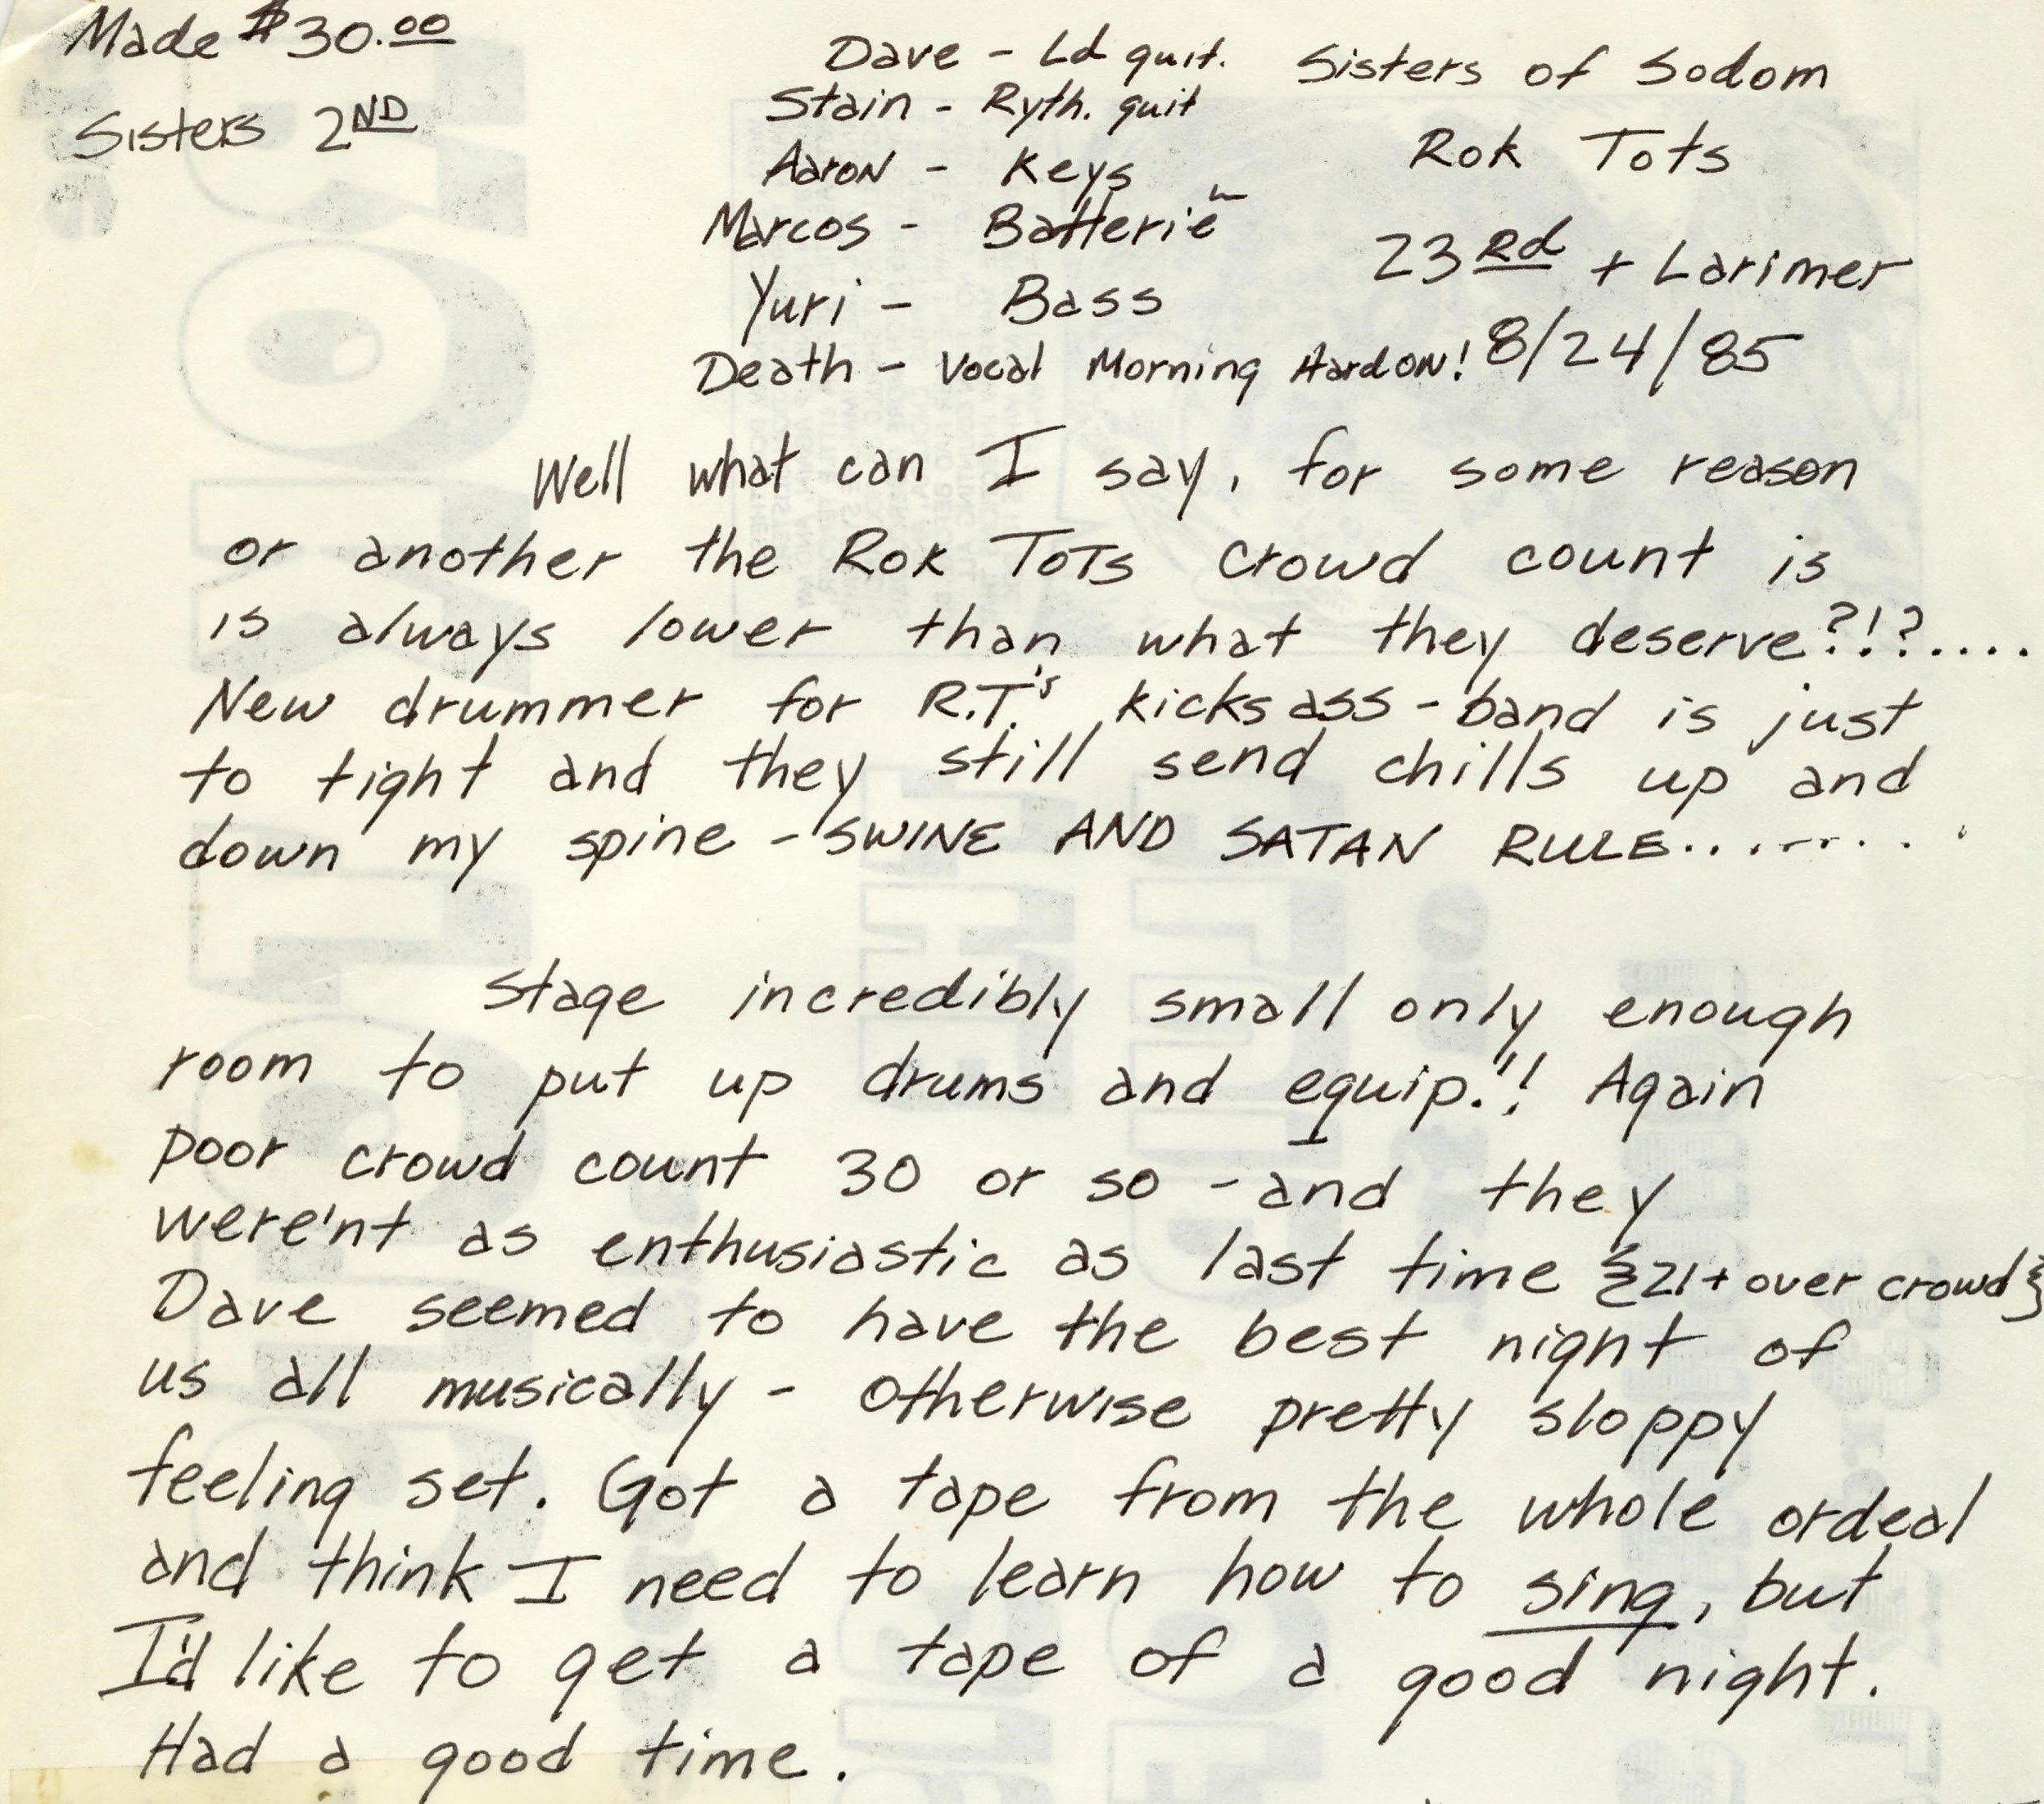 Made $30.00
Sisters 2ND
Dave - Ld guit.
Stain - Ryth. guit
Aaron - Keys
Marcos - Batterie
Yuri - Bass
Death - Vocal Morning HardoN!
Sisters of Sodom
Rok Tots
23Rd + Larimer
8/24/85
Well what can I say, for some reason
or another the Rok Tots crowd count is
is always lower than what they deserve?!?....
New drummer for R.T.'s kicks ass - band is just
to tight and they still send chills up and
down my spine - SWINE AND SATAN RULE.........
Stage incredibly small only enough
room to put up drums and equip.!! Again
poor crowd count 30 or so - and they
were'nt as enthusiastic as last time {21 + over crowd}
Dave seemed to have the best night of
us all musically - otherwise pretty sloppy
feeling set. Got a tape from the whole ordeal
and think I need to learn how to sing, but
I'd like to get a tape of a good night.
Had a good time.